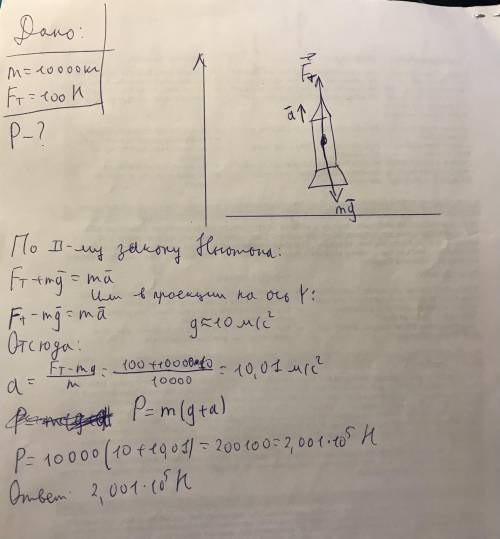 Дано:
m=10000кг
Fт=100 Н
P-?
F⃗т
a⃗
mg⃗
По II-му закону Ньютона:
Fт+mg⃗=ma⃗
Или в проекции на ось Y:
Fт-mg⃗=ma⃗
g≈10 м/с²
Отсюда:
a = (Fт-mg)/m = (100+10000·10)/10000 = 10,01 м/с²
P=m(g+a)
P=10000(10+10,01)=200100=2,001·10⁵ Н
Ответ: 2,001·10⁵ Н